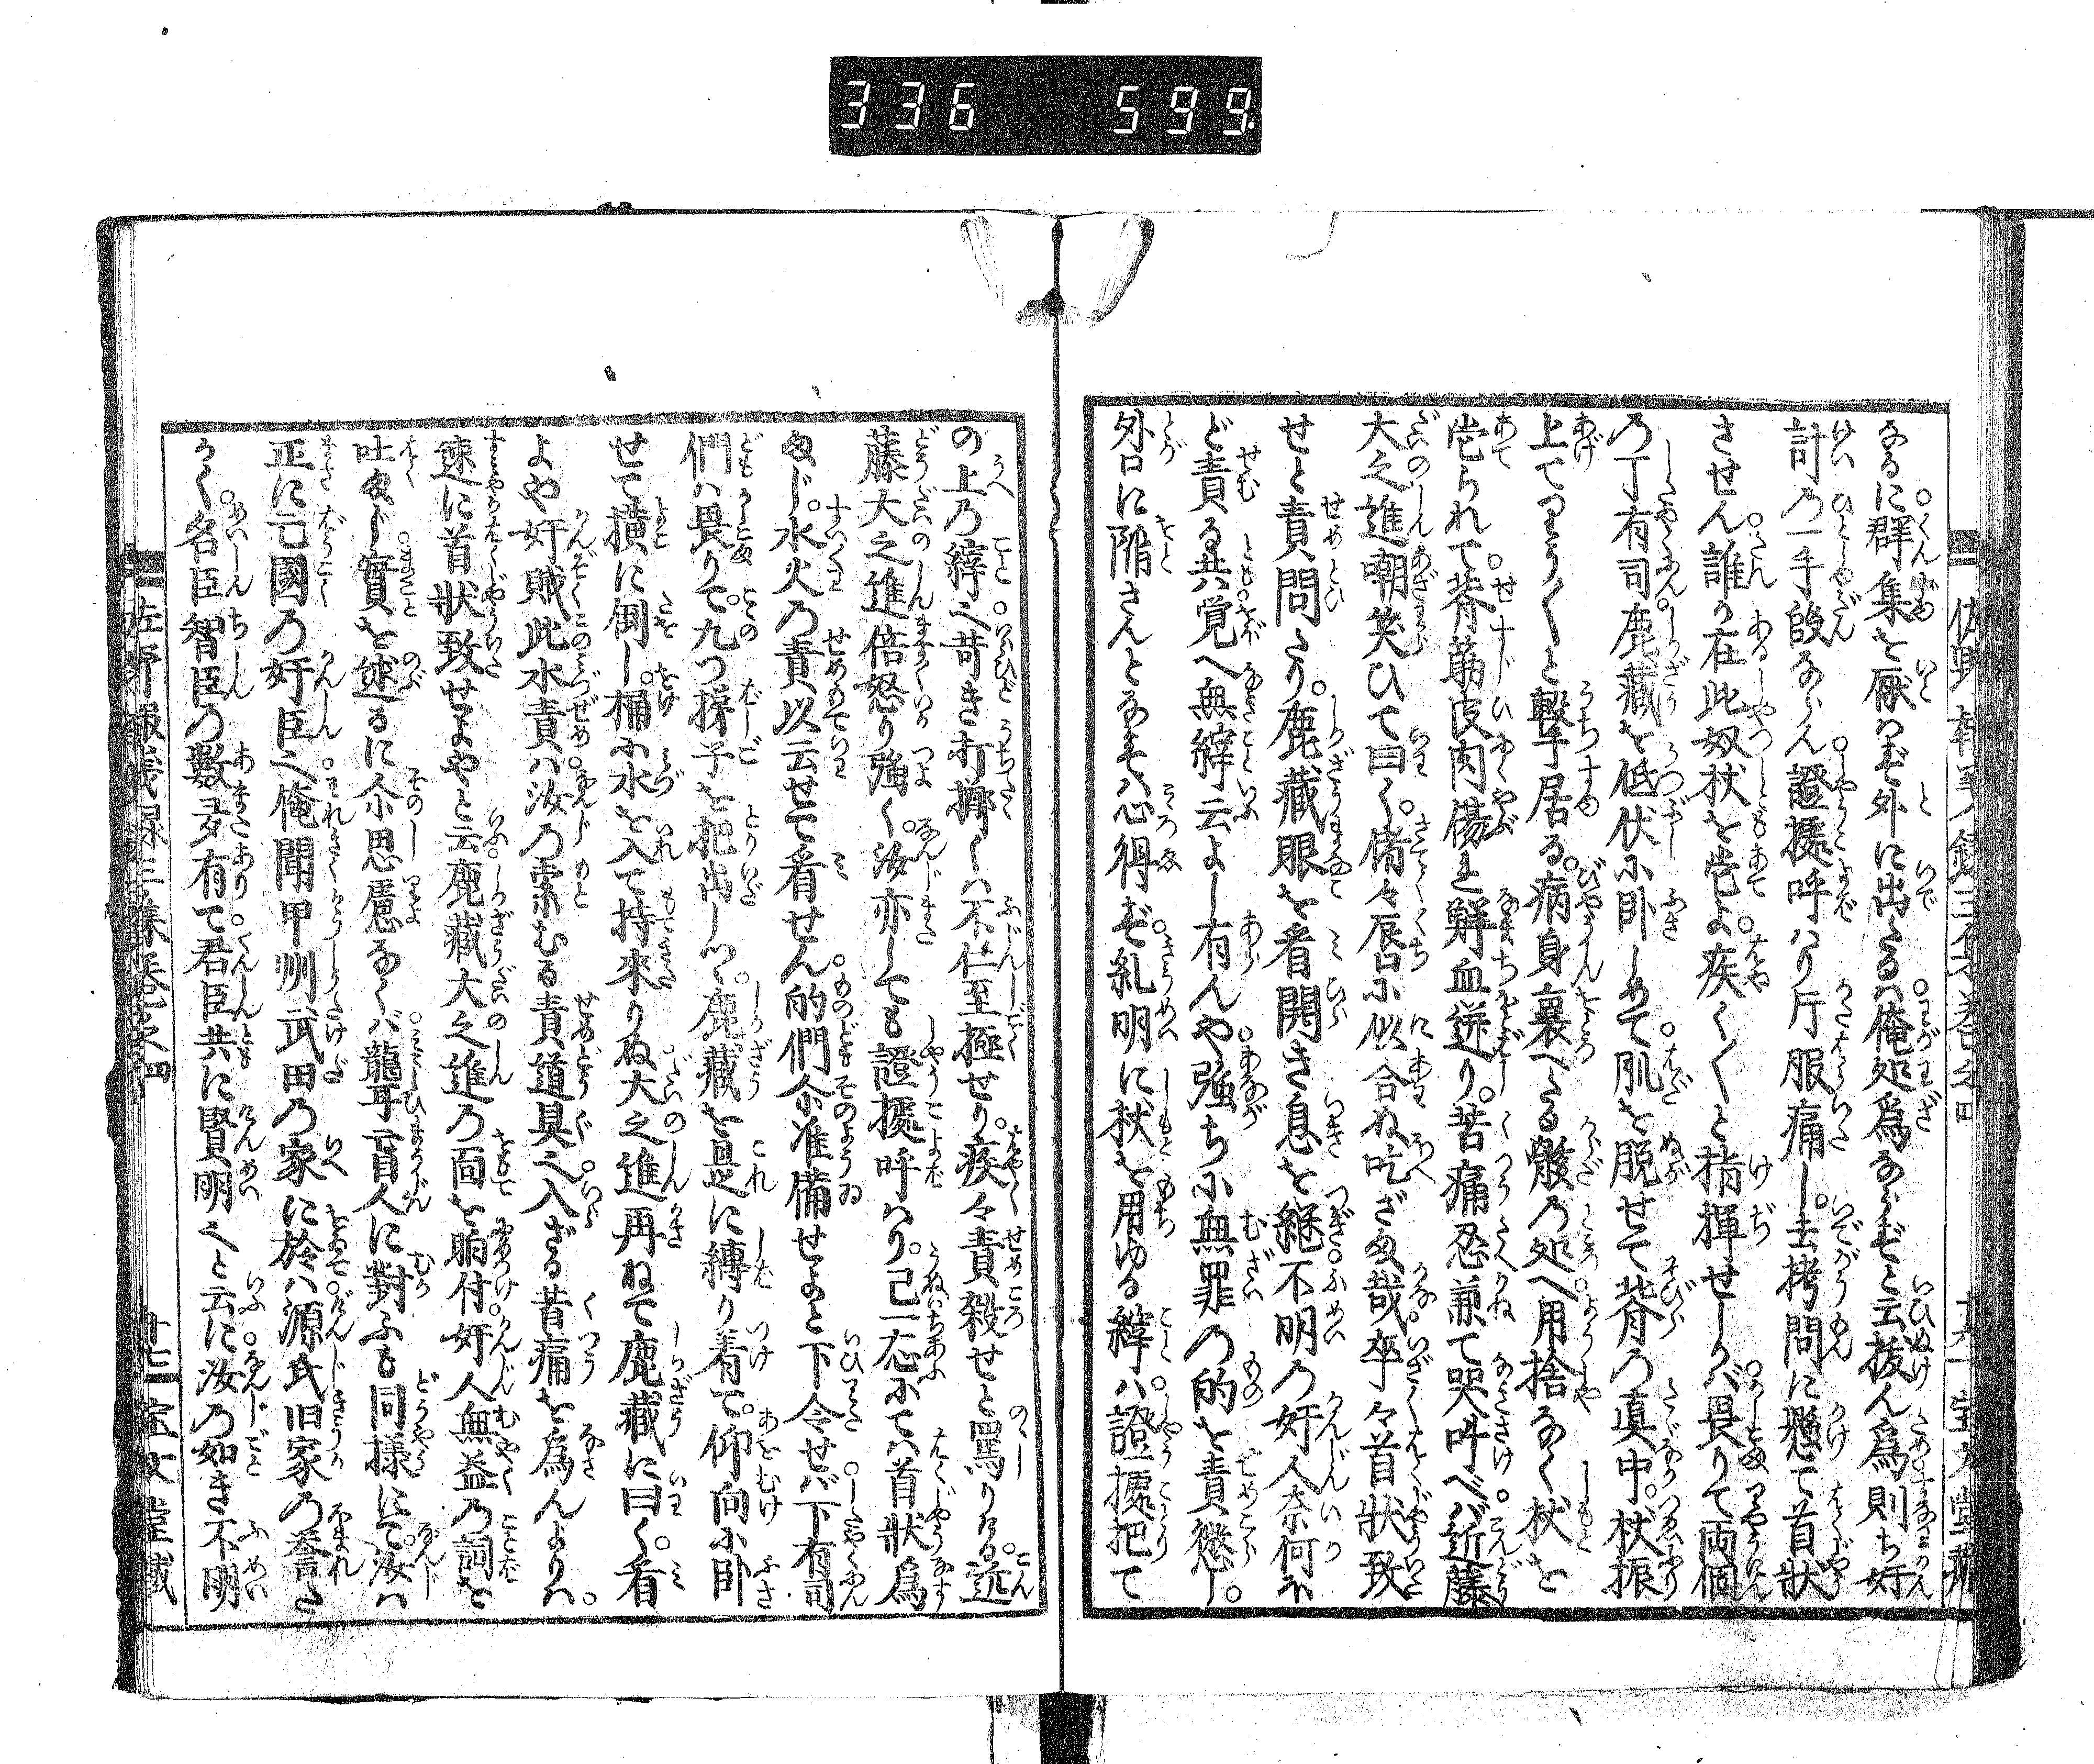 336 599.
佐野報義録三集巻之四 宝文堂蔵
なるに群集を厭はず外に出たるは俺処為ならずと云抜ん為則ち奸
計の一手段ならん證拠呼はり片腹痛し。去拷問に懸て首状
させん誰か在此奴杖を当よ疾く〳〵と指揮せしかバ畏りて両個
の丁有司鹿蔵を低伏に卧しめて肌を脱せて背の真中。杖振
上てりう〳〵と撃居る。病身衰へたる骸の処へ用捨なく杖を
当られて。背筋皮肉傷れ鮮血迸り。苦痛忍兼て哭叫べバ近藤
大之進嘲笑ひて曰く。偖々唇口に似合ぬ吃ざま哉卒々首状致
せと責問たり。鹿蔵眼を看開き息を継不明の奸人奈何ほ
ど責る共覚へ無縡云よし有んや強ちに無罪の的を責懲し。
外口に陥さんとなすハ心得ず糺明に杖を用ゆる縡ハ證拠把て
の上の縡之苛き打擲くハ不仁至極せり。疾々責殺せと罵りける。近
藤大之進倍怒り強く。汝亦しても證拠呼はり。己一応にてハ首状為
まじ。水火の責以云せて看せん。的們尒准備せよと下令せバ下有司
們ハ畏りて。九つ梯子を把出しつゝ。鹿蔵を是に縛り着て。仰向に卧
せて横に倒し。桶に水を入て持来りぬ大之進再ねて鹿蔵に曰く。看
よや奸賊此水責ハ汝の索むる責道具之入ざる昔痛を為んよりハ。
速に首状致せよやと云鹿蔵大之進の面を眴付奸人無益の詞を
吐まじ実を述るに尒思慮なくバ聾耳盲人に対ふも同様にて。汝ハ
正に亡国の奸臣之俺聞甲州武田の家に於ハ源氏旧家の誉さ
かく名臣智臣の数多有て君臣共に賢明之と云に汝の如き不明
佐野報義録三集巻之四 廿三 宝文堂蔵